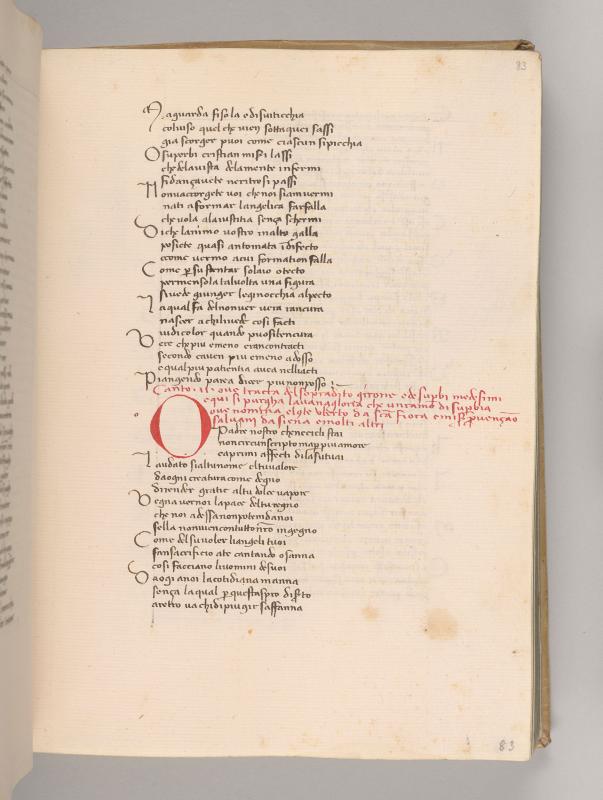 83
Ma guarda fiso la e disviticchia
col viso quel che vien sotta quei sassi
gia scorger puoi come ciascun si picchia
O superbi cristian miseri lassi
che de la vista de la mente infermi
fidança avete ne ritrosi passi
Non v accorgete voi che noi siam vermi
nati a formar l angelica farfalla
che vola a la iustitia sença schermi
Di che l animo vostro in alto galla
poi siete quasi antomata in difecto
come vermo a cui formation falla
Come p sustentar solaio o tecto
per mensola talvolta una figura
si vede giunger le ginocchia al pecto
la qual fa del non ver vera rancura
nascer a chi li vede cosi facti
vid i color quando puosi ben cura
Vere che piu e meno eran contracti
secondo ch avien piu e meno adosso
e qual piu patientia avea nelli acti
Piangendo parea dicer piu non posso
Canto .11. ove tracta del sopradito girone e de supbi medesimi
e qui si purgha la vana gloria che un ramo di supbia
ove nomina el gte Uberto da sca fiora e miss pvençan
salvani da siena e molti altri
O Padre nostro che ne cieli stai
non circunscripto ma p piu amore
ca primi affecti di la su tu ai
Laudato sia l tu nome e l tu valore
da ogni creatura come degno
di render gratie al tu dolce vapore
Vegna ver noi la pace del tu regno
che noi ad essa non potem da noi
s ella non vien con tutto nro ingegno
Come del suo voler li angeli tuoi
fan sacrificio a te cantando osanna
cosi facciano li uomini de suoi
Da ogi a noi la cotidiana manna
sença la qual p questo aspro diserto
a retro va chi di piu gir s affanna
83